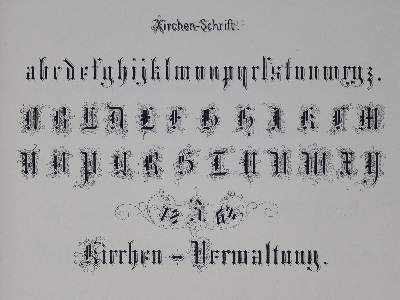 Kirchen-Schrift.
abcdefghijklmnopqrſstuvwxyz.
A B C D E F G H I K L M
N O P Q R S T U V W X Y
Kirchen-Verwaltung.